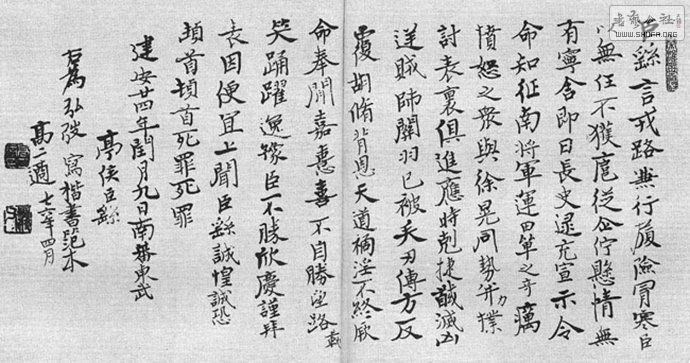 臣繇言戎路兼行履險冒寒臣
以無任不獲扈從企佇懸情無
有寧舍即日長史逯充宣示令
命知征南將軍運田單之奇厲
憤怒之眾與徐晃同勢并力撲
討表裏俱進應時剋捷馘滅凶
逆賊帥關羽已被矢刃傅方反
覆胡脩背恩天道禍淫不終厥
命奉聞嘉憙喜不自勝望路載
笑踊躍逸豫臣不勝欣慶謹拜
表因便宜上聞臣繇誠惶誠恐
頓首頓首死罪死罪
建安廿四年閏月九日南蕃東武
亭侯臣繇
右為弘寫楷書范本
高二適 七六年四月
WWW.SHUFA.ORG